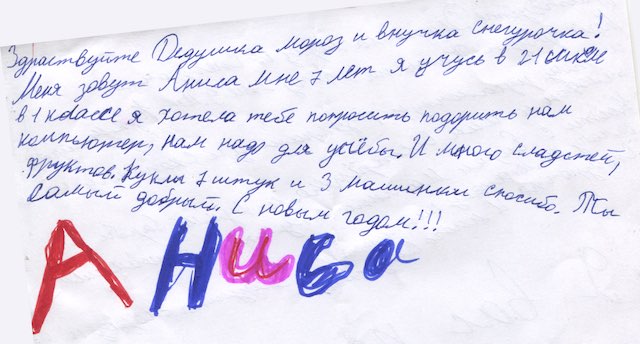 Здраствуйте Дедушка мороз и внучка снегурочка!
Меня зовут Анива мне 7 лет я учусь в 21 школе
в 1 классе я хотела тебе попросить подорить нам
компьютер, нам надо для учёбы. И много сладстей,
фруктов. Куклы 7 штук и 3 машинки спосибо. Ты
самый добрый. С новым годом!!!
Анива